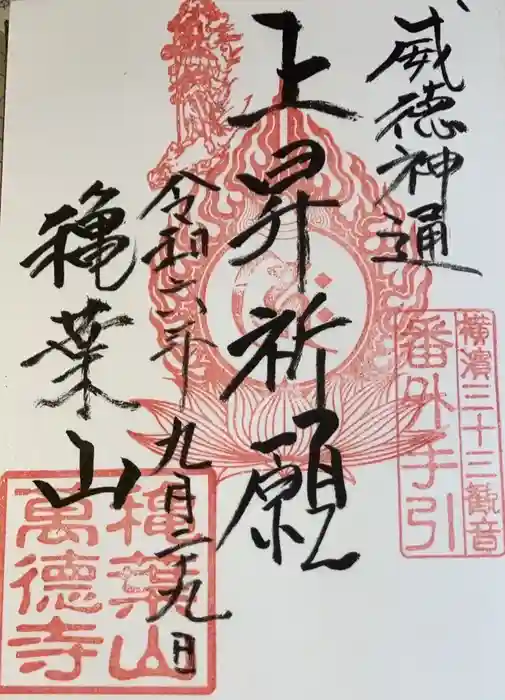 威徳神通
上昇祈願
令和六年九月二十九日
龝葉山
横濱三十三観音
番外手引
龝葉山
萬德寺